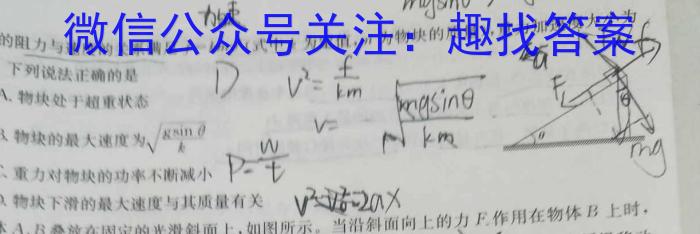 加速
mgsinθ
的阻力与
微信公众号关注：趣找答案
下列说法正确的是
D
v²=f/km
A. 物块处于超重状态
v=
√(mgsinθ/km)
F
f
θ
mg
B. 物块的最大速度为√(gsinθ/k)
C. 重力对物块的功率不断减小
P=W/t
D. 物块下滑的最大速度与其质量有关
体A、B叠放在固定的光滑斜面上,如图所示。当沿斜面向上的力F作用在物体B上时,